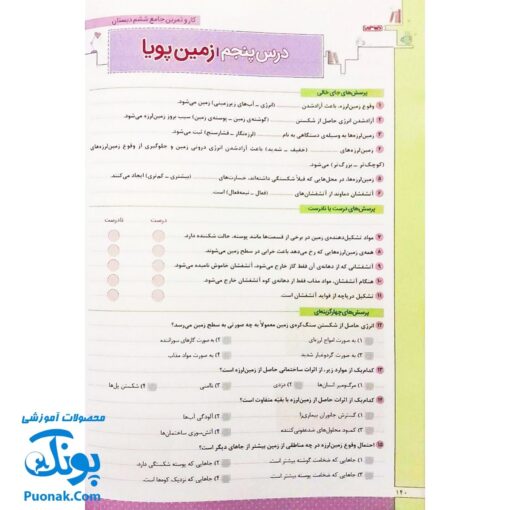 کار و تمرین جامع ششم دبستان
درس پنجم: زمین پویا
پرسش‌های جای خالی
۱ وقوع زمین‌لرزه، باعث آزادشدن (انرژی ـ آب‌های زیرزمینی) زمین می‌شود.
۲ آزادشدن انرژی حاصل از شکستن (گوشته‌ی زمین ـ پوسته‌ی زمین) سبب بروز زمین‌لرزه می‌شود.
۳ زمین‌لرزه‌ها به وسیله‌ی دستگاهی به نام (لرزه‌نگار ـ فشارسنج) ثبت می‌شود.
۴ زمین‌لرزه‌های (خفیف ـ شدید) باعث آزادشدن انرژی درونی زمین و جلوگیری از وقوع زمین‌لرزه‌های
(کوچک‌تر ـ بزرگ‌تر) می‌شود.
۵ زمین‌لرزه‌ها، در محل‌هایی که قبلاً شکستگی داشته‌اند، خسارت‌های (بیشتری ـ کم‌تری) ایجاد می‌کنند.
۶ آتشفشان دماوند از آتشفشان‌های (فعال ـ نیمه‌فعال) است.
پرسش‌های درست یا نادرست
درست نادرست
۷ مواد تشکیل‌دهنده‌ی زمین در برخی از قسمت‌ها مانند پوسته، حالت شکننده دارد.
۸ همه‌ی زمین‌لرزه‌هایی که رخ می‌دهد باعث خرابی در سطح زمین می‌شوند.
۹ آتشفشانی که از دهانه‌ی آن فقط گاز خارج می‌شود، آتشفشان خاموش نامیده می‌شود.
۱۰ هنگام آتشفشان، مواد مذاب فقط از دهانه‌ی کوه آتشفشان خارج می‌شود.
۱۱ تشکیل دریاچه از فواید آتشفشان است.
پرسش‌های چهارگزینه‌ای
۱۲ انرژی حاصل از شکستن سنگ‌کره‌ی زمین معمولاً به چه صورتی به سطح زمین می‌رسد؟
۱) به صورت امواج لرزه‌ای ۲) به صورت گازهای سوزاننده
۳) به صورت گردوغبار شدید ۴) به صورت مواد مذاب
۱۳ کدام‌یک از موارد زیر، از اثرات ساختمانی حاصل از زمین‌لرزه است؟
۱) مرگ‌ومیر انسان‌ها ۲) دزدی ۳) ناامنی ۴) شکستن پل‌ها
۱۴ کدام‌یک از اثرات حاصل از زمین‌لرزه با بقیّه متفاوت است؟
۱) گسترش جانوران بیماری‌زا ۲) آلودگی آب‌ها
۳) کمبود محلول‌های ضدعفونی‌کننده ۴) آتش‌سوزی ساختمان‌ها
۱۵ احتمال وقوع زمین‌لرزه در چه مناطقی از زمین بیشتر از جاهای دیگر است؟
۱) جاهایی که ضخامت گوشته بیشتر است ۲) جاهایی که پوسته شکستگی دارد.
۳) جاهایی که ضخامت پوسته بیشتر است. ۴) جاهایی که نزدیک کوه‌ها است.
۱۴۰
محصولات آموزشی
پونک
Puonak.Com